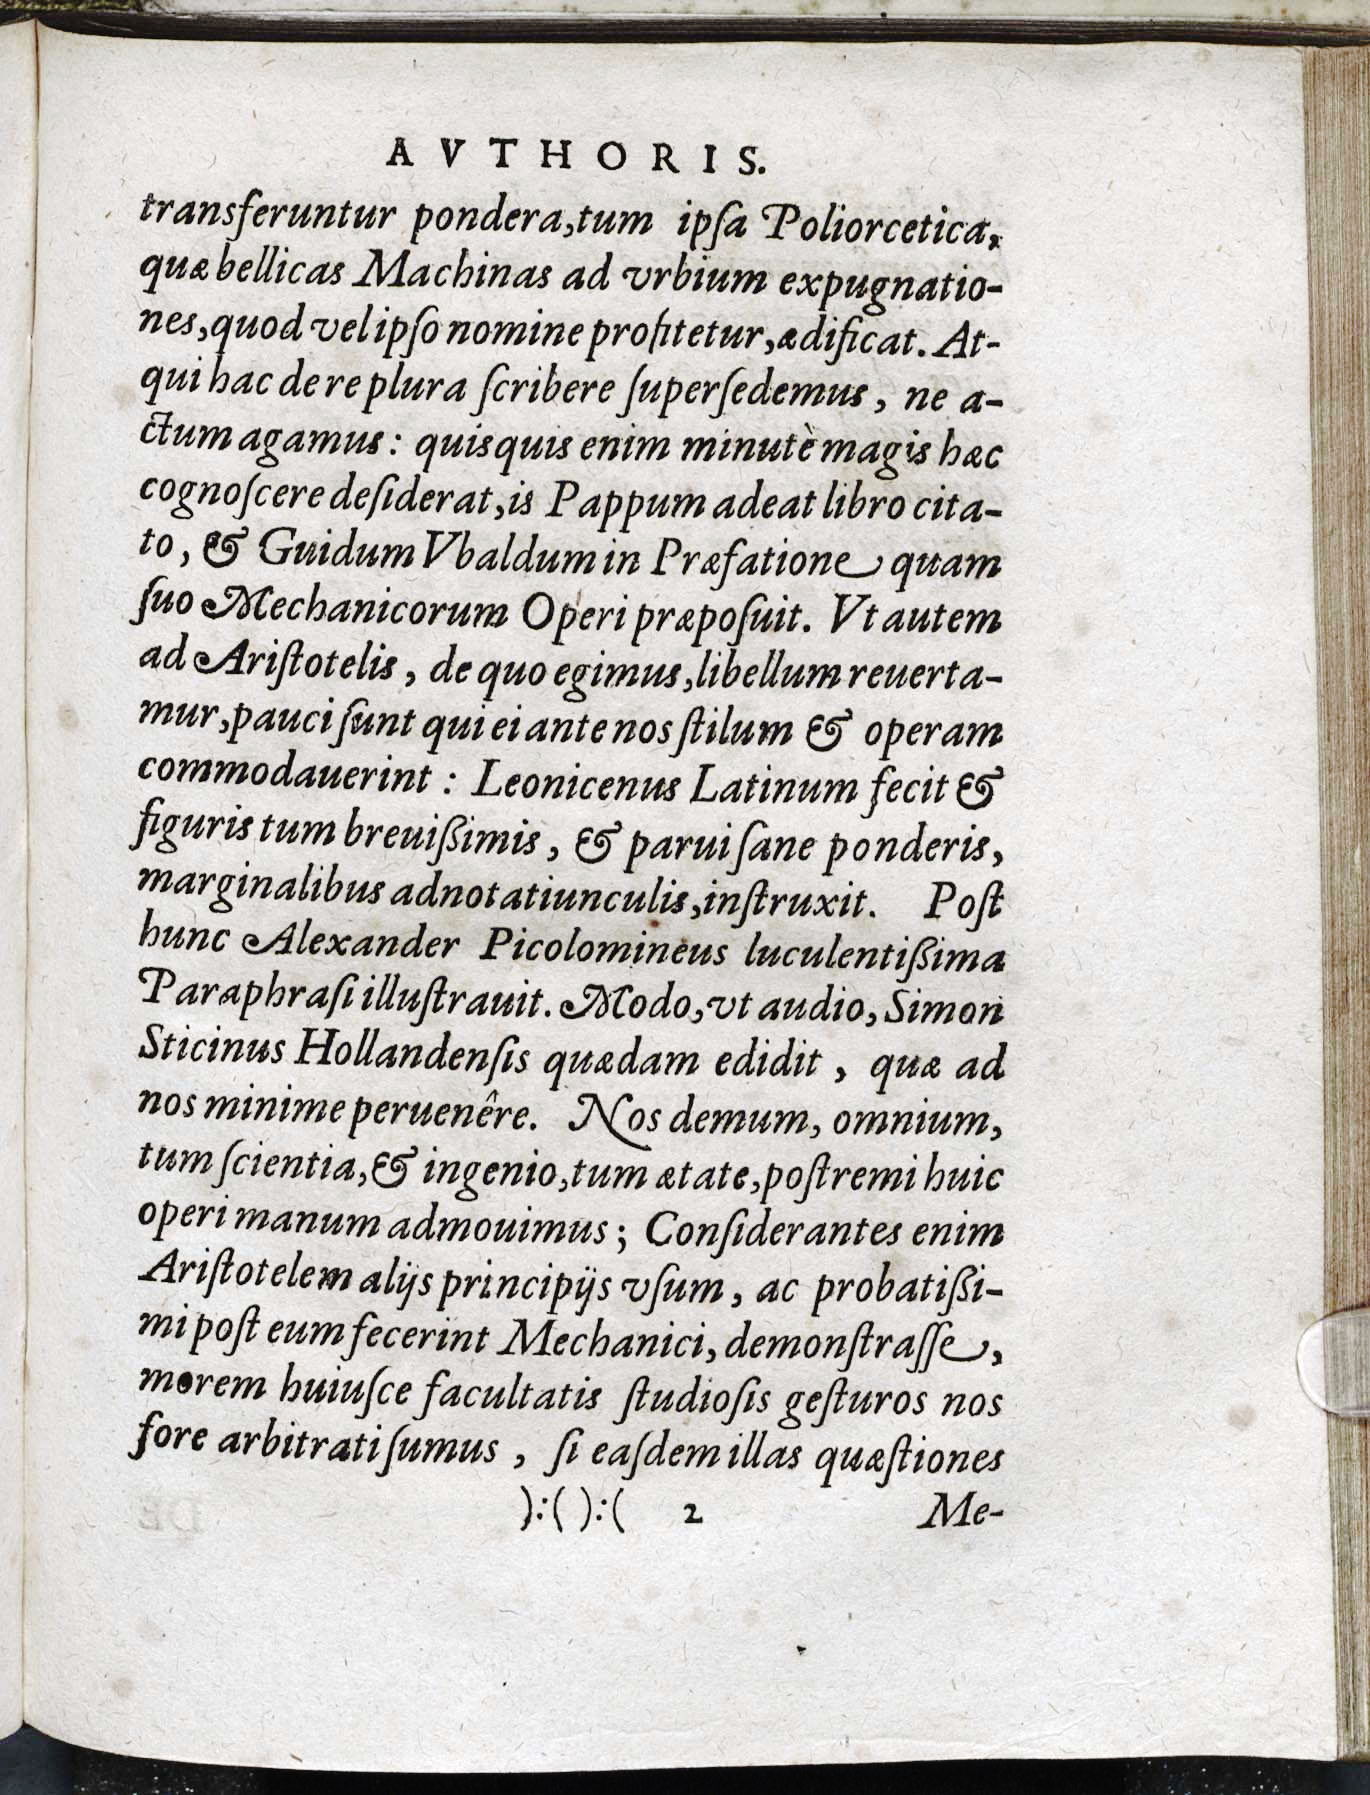 AVTHORIS.
transferuntur pondera,tum ipſa Poliorcetica,
quæ bellicas Machinas ad vrbium expugnatio-
nes,quod vel ipſo nomine profitetur,ædificat. At-
qui hac de re plura ſcribere ſuperſedemus, ne a-
ctum agamus: quisquis enim minutè magis hæc
cognoſcere deſiderat,is Pappum adeat libro cita-
to, & Guidum Vbaldum in Præfatione quam
ſuo Mechanicorum Operi præpoſuit. Vt autem
ad Ariſtotelis, de quo egimus,libellum reuerta-
mur,pauci ſunt qui ei ante nos ſtilum & operam
commodauerint: Leonicenus Latinum fecit &
figuris tum breuißimis, & parui ſane ponderis,
marginalibus adnotatiunculis,inſtruxit. Poſt
hunc Alexander Picolomineus luculentißima
Paraphraſi illuſtrauit. Modo,vt audio, Simon
Sticinus Hollandenſis quædam edidit, quæ ad
nos minime peruenêre. Nos demum, omnium,
tum ſcientia,& ingenio,tum ætate,poſtremi huic
operi manum admouimus; Conſiderantes enim
Ariſtotelem alijs principijs vſum, ac probatißi-
mi poſt eum fecerint Mechanici, demonſtraſſe,
morem huiuſce facultatis ſtudioſis geſturos nos
fore arbitrati ſumus, ſi eaſdem illas quæſtiones
):( ):( 2 Me-